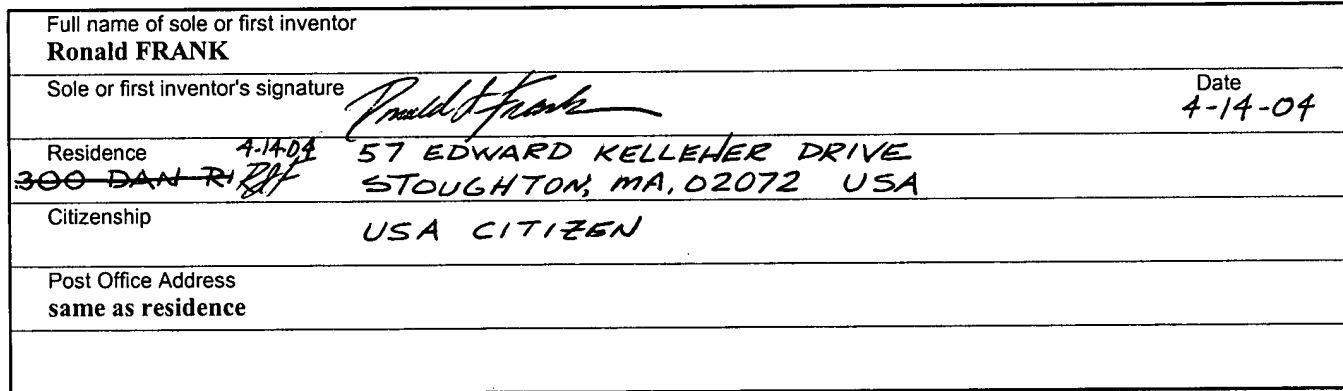 Full name of sole or first inventor
Ronald FRANK
Sole or first inventor's signature Ronald J Frank
Date
4-14-04
Residence 4-14-04 57 EDWARD KELLEHER DRIVE
300 DAN RI RJF STOUGHTON, MA, 02072 USA
Citizenship
USA CITIZEN
Post Office Address
same as residence